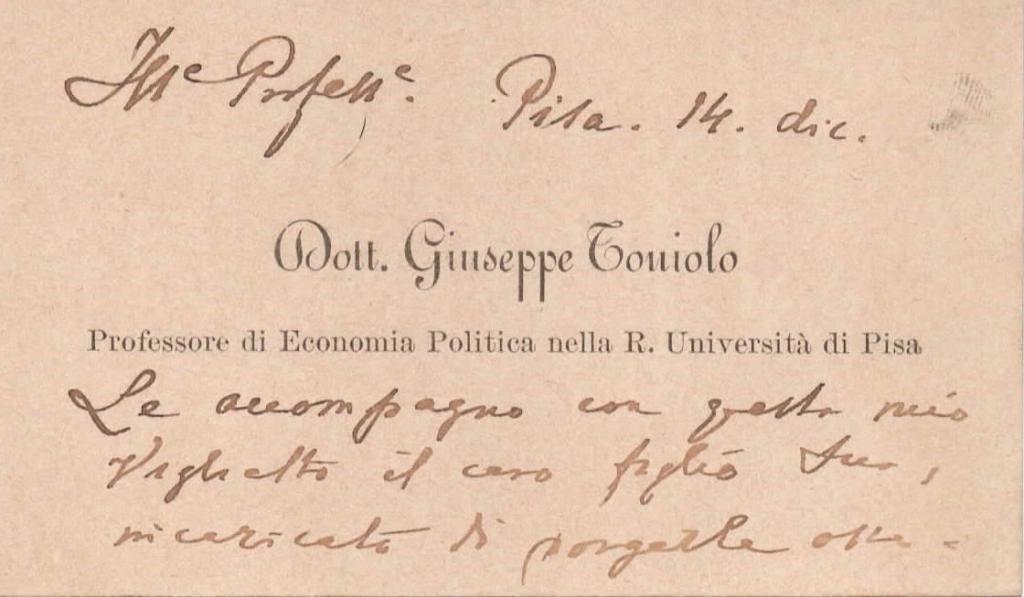 Ill.e Profess.e Pisa. 14. dic.
Dott. Giuseppe Toniolo
Professore di Economia Politica nella R. Università di Pisa
Le accompagno con questo mio
viglietto il caro figlio Suo,
incaricato di porgerle osse-